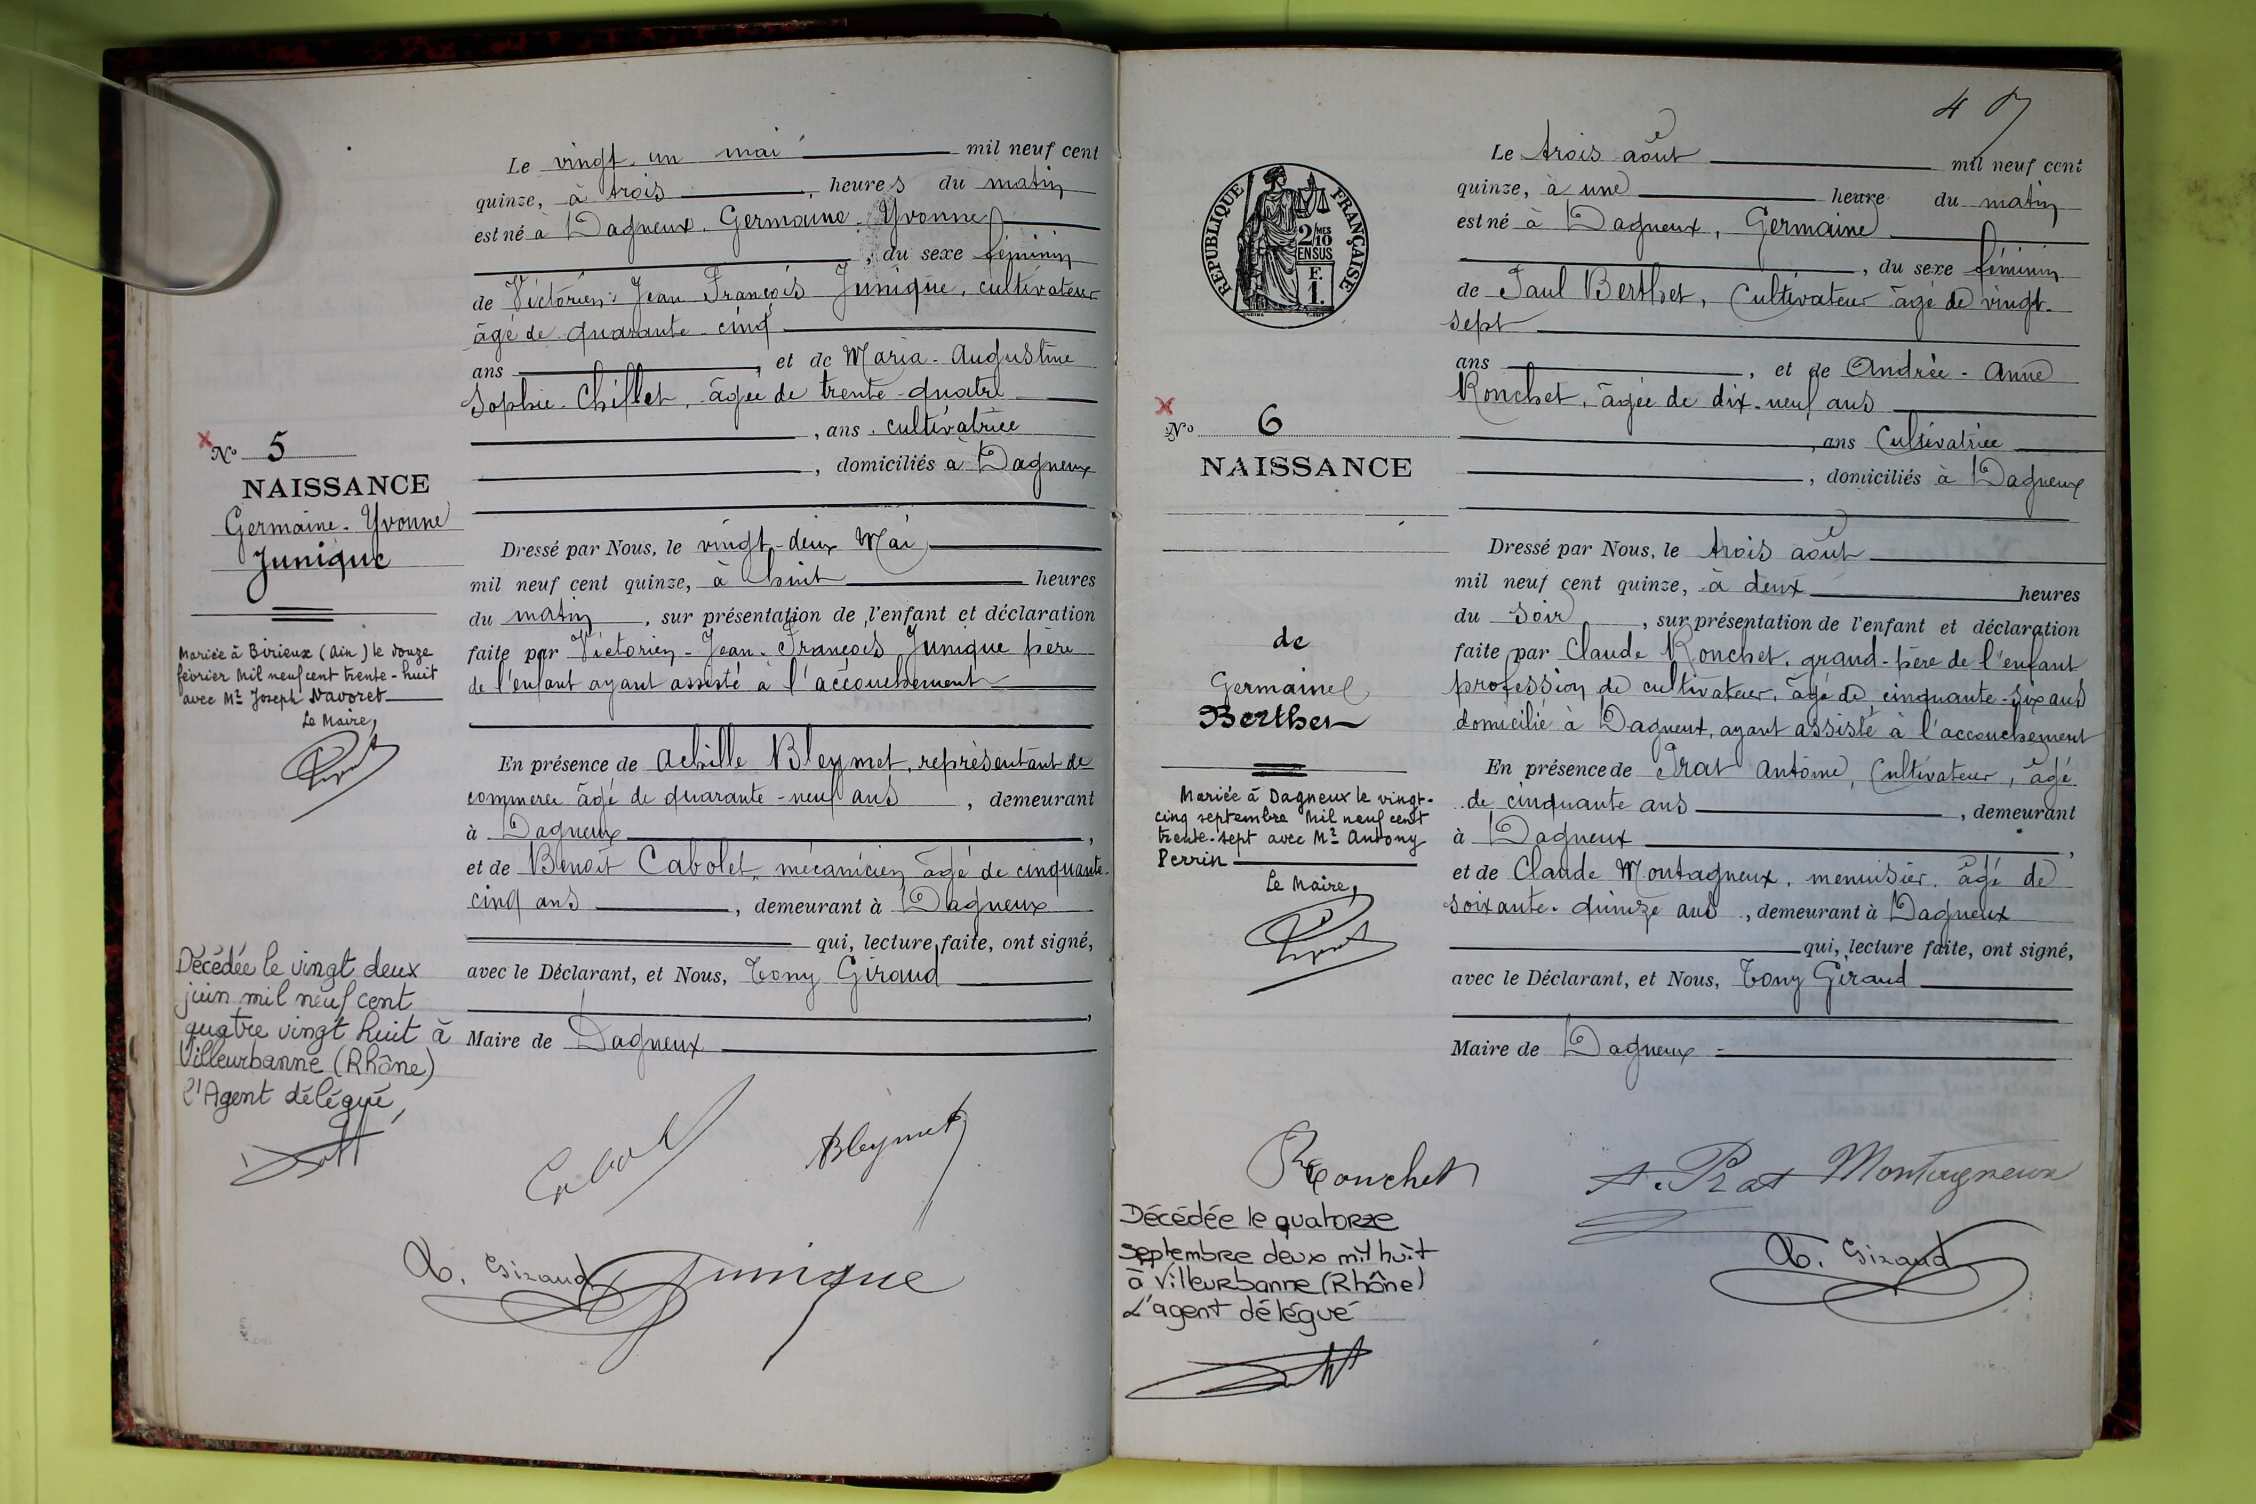 Le vingt-un mai mil neuf cent
quinze, à trois heures du matin
est né à Dagneux, Germaine-Yvonne
, du sexe féminin
de Victorien-Jean François Junique, cultivateur
âgé de quarante-cinq
ans , et de Maria-Augustine
Sophie Chillet, âgée de trente-quatre
, ans, cultivatrice
, domiciliés à Dagneux
No 5
NAISSANCE
Germaine-Yvonne
Junique
Dressé par Nous, le vingt-deux Mai
mil neuf cent quinze, à huit heures
du matin , sur présentation de l'enfant et déclaration
faite par Victorien-Jean-François Junique père
de l'enfant ayant assisté à l'accouchement
Mariée à Birieux (Ain) le douze
février mil neuf cent trente-huit
avec Mr Joseph Navoret
Le Maire,
En présence de Achille Bleymet, représentant de
commerce âgé de quarante-neuf ans , demeurant
à Dagneux ,
et de Benoît Cabolet, mécanicien âgé de cinquante-
cinq ans , demeurant à Dagneux
qui, lecture faite, ont signé,
avec le Déclarant, et Nous, Tony Giraud
,
Maire de Dagneux
Décédée le vingt deux
juin mil neuf cent
quatre vingt huit à
Villeurbanne (Rhône)
l'Agent délégué,
Bleymet
T. Giraud Junique
47
RÉPUBLIQUE FRANÇAISE
2/10
MES
EN SUS
F.
1.
Le trois août mil neuf cent
quinze, à une heure du matin
est né à Dagneux, Germaine
, du sexe féminin
de Paul Berthet, Cultivateur âgé de vingt-
sept
ans , et de Andrée-Anne
Ronchet, âgée de dix-neuf ans
, ans Cultivatrice
, domiciliés à Dagneux
No 6
NAISSANCE
de
Germaine
Berthet
Dressé par Nous, le trois août
mil neuf cent quinze, à deux heures
du soir , sur présentation de l'enfant et déclaration
faite par Claude Ronchet, grand-père de l'enfant
profession de cultivateur, âgé de cinquante-six ans
domicilié à Dagneux, ayant assisté à l'accouchement
Mariée à Dagneux le vingt-
cinq septembre Mil neuf cent
trente-sept avec Mr Antony
Perrin
Le Maire,
En présence de Prat Antoine, Cultivateur, âgé
de cinquante ans , demeurant
à Dagneux ,
et de Claude Montagneux, menuisier, âgé de
soixante-quinze ans , demeurant à Dagneux
qui, lecture faite, ont signé,
avec le Déclarant, et Nous, Tony Giraud
Maire de Dagneux
Ronchet
A. Prat Montagneux
T. Giraud
Décédée le quatorze
septembre deux mil huit
à Villeurbanne (Rhône)
L'agent délégué